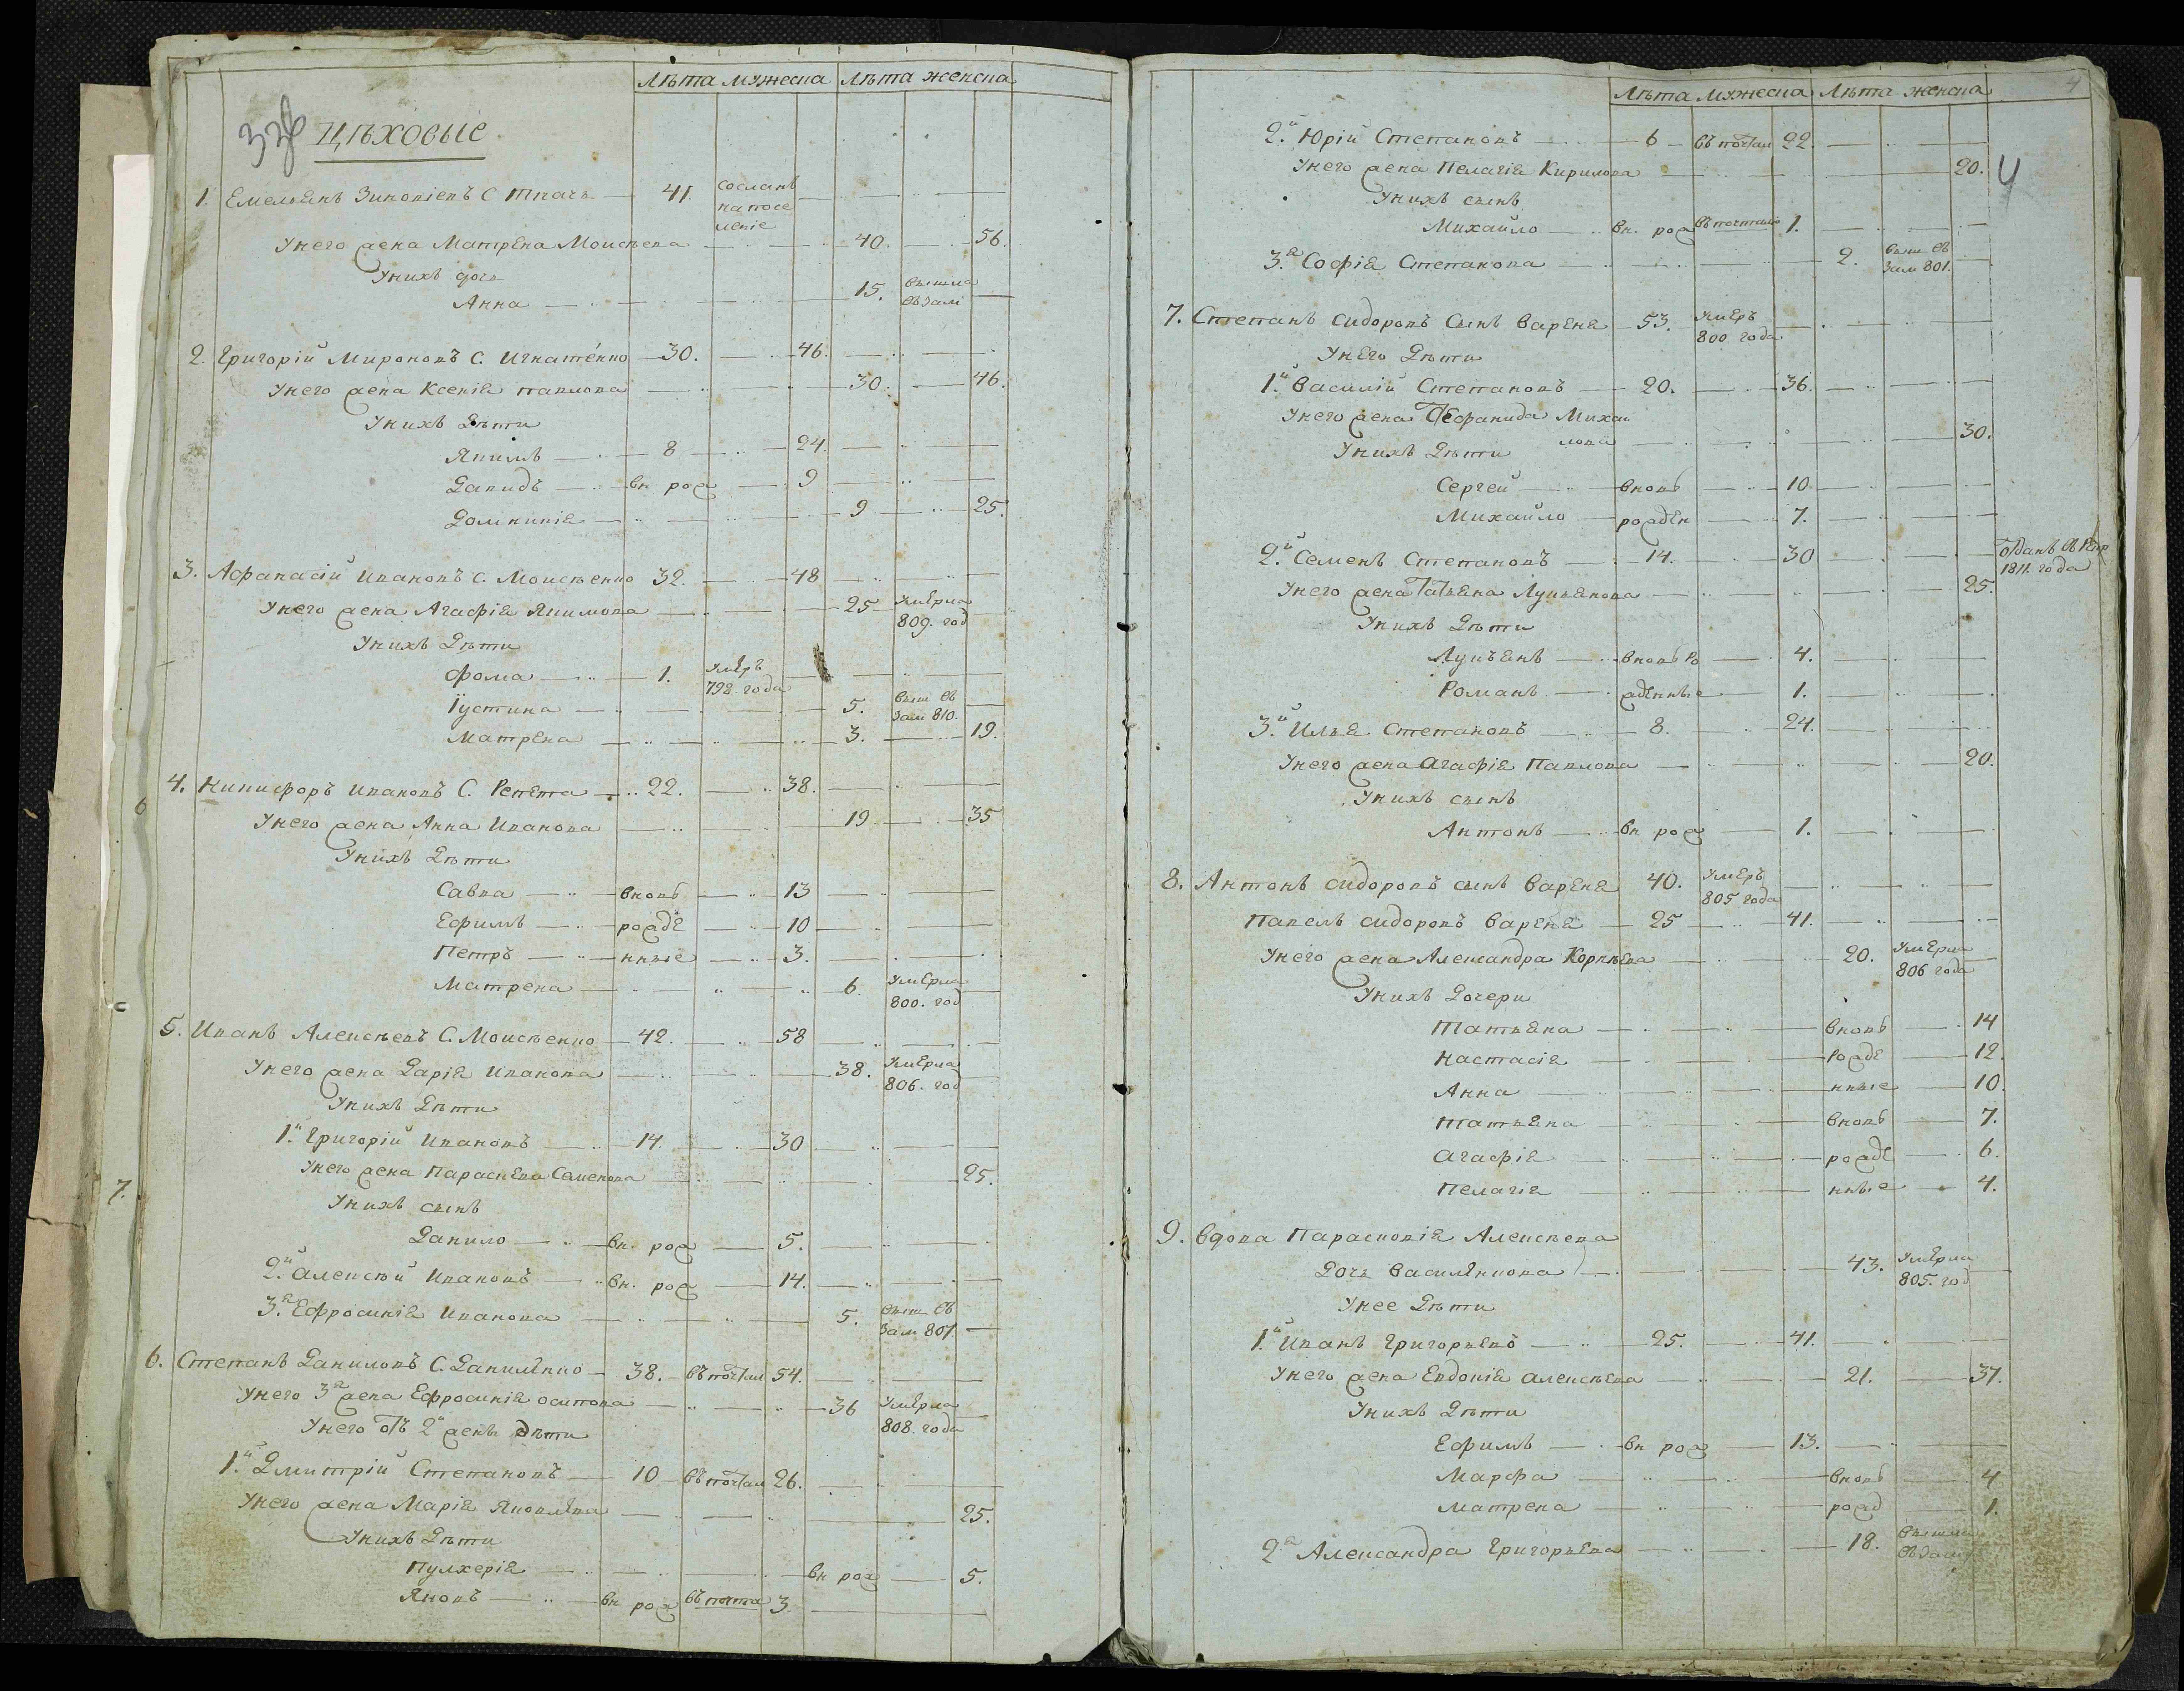 Лѣта мужеска Лѣта женска
Цѣховые
1. Емельянъ Зиновіевъ С. Ткачь 41. сосланъ на посе леніе
У него жена Матрена Моисѣева 40. 56.
У нихъ дочь
Анна 15. вышла въ зам
2. Григорій Мироновъ С. Игнатенко 30. 46.
У него жена Ксенія Павлова 30. 46.
У нихъ дѣти
Якимъ 8 24
Давидъ вн рож 9
Домникія 9 25.
3. Афанасій Ивановъ С. Моисѣенко 32. 48
У него жена Агафія Якимова 25 умерла 809. год
У нихъ дѣти
Фома 1. умеръ 798. года
Іустина 5. выш въ зам 810.
Матрена 3. 19.
4. Никифоръ Ивановъ С. Репета 22. 38.
У него жена Анна Иванова 19 35
У нихъ дѣти
Савва вновь 13
Ефимъ рожде 10
Петръ нные 3.
Матрена 6. умерла 800. год
5. Иванъ Алексѣевъ С. Моисѣенко 42. 58
У него жена Дарія Иванова 38. умерла 806. год
У нихъ дѣти
1й Григорій Ивановъ 14. 30
У него жена Параскева Семенова 25.
У нихъ сынъ
Данило вн. рож 5.
2й Алексѣй Ивановъ вн. рож 14.
3я Ефросинія Иванова 5. выш въ зам 807.
6. Степанъ Даниловъ С. Даниленко 38. въ почтал 54.
У него 3я жена Ефросинія Осипова 36 умерла 808. года
У него отъ 2й жены дѣти
1й Дмитрій Степановъ 10 въ почтал 26.
У него жена Марія Яковлева 25.
У нихъ дѣти
Пулхерія вн рож 5.
Яковъ вн рож въ почта 3
Лѣта мужеска Лѣта женска
4
2й Юрій Степановъ 6 въ почтал 22.
У него жена Пелагія Кирилова 20.
У нихъ сынъ
Михайло вн. рож въ почтал 1.
3я Софія Степанова 2. выш въ зам 801.
7. Степанъ Сидоровъ Сынъ Вареня 53. умеръ 800 года
У него дѣти
1й Василій Степановъ 20. 36.
У него жена Стефанида Михай
лова 30.
У нихъ дѣти
Сергей вновь 10
Михайло рожден 7.
2й Семенъ Степановъ 14. 30 отданъ въ рекр 1811. года
У него жена Татьяна Лукьянова 25.
У нихъ дѣти
Лукъянъ вновь ро 4.
Романъ жденные 1.
3й Илья Степановъ 8. 24.
У него жена Агафія Павлова 20.
У нихъ сынъ
Антонъ вн рож 1.
8. Антонъ Сидоровъ сынъ Вареня 40. умеръ 805 года
Павелъ Сидоровъ Вареня 25 41.
У него жена Александра Корнѣева 20. умерла 806 года
У нихъ дочери
Татьяна вновь 14
Настасія рожде 12.
Анна нные 10.
Татьяна вновь 7.
Агафія рожде 6.
Пелагія нные 4.
9. Вдова Парасковія Алексѣева
дочь Василенкова 43. умерла 805. год
У нее дѣти
1й Иванъ Григорьевъ 25. 41.
У него жена Евдокія Алексѣева 21. 37.
У нихъ дѣти
Ефимъ вн рож 13.
Марфа вновь 4
Матрена рожд 1.
2я Александра Григорьева 18. вышла въ зам